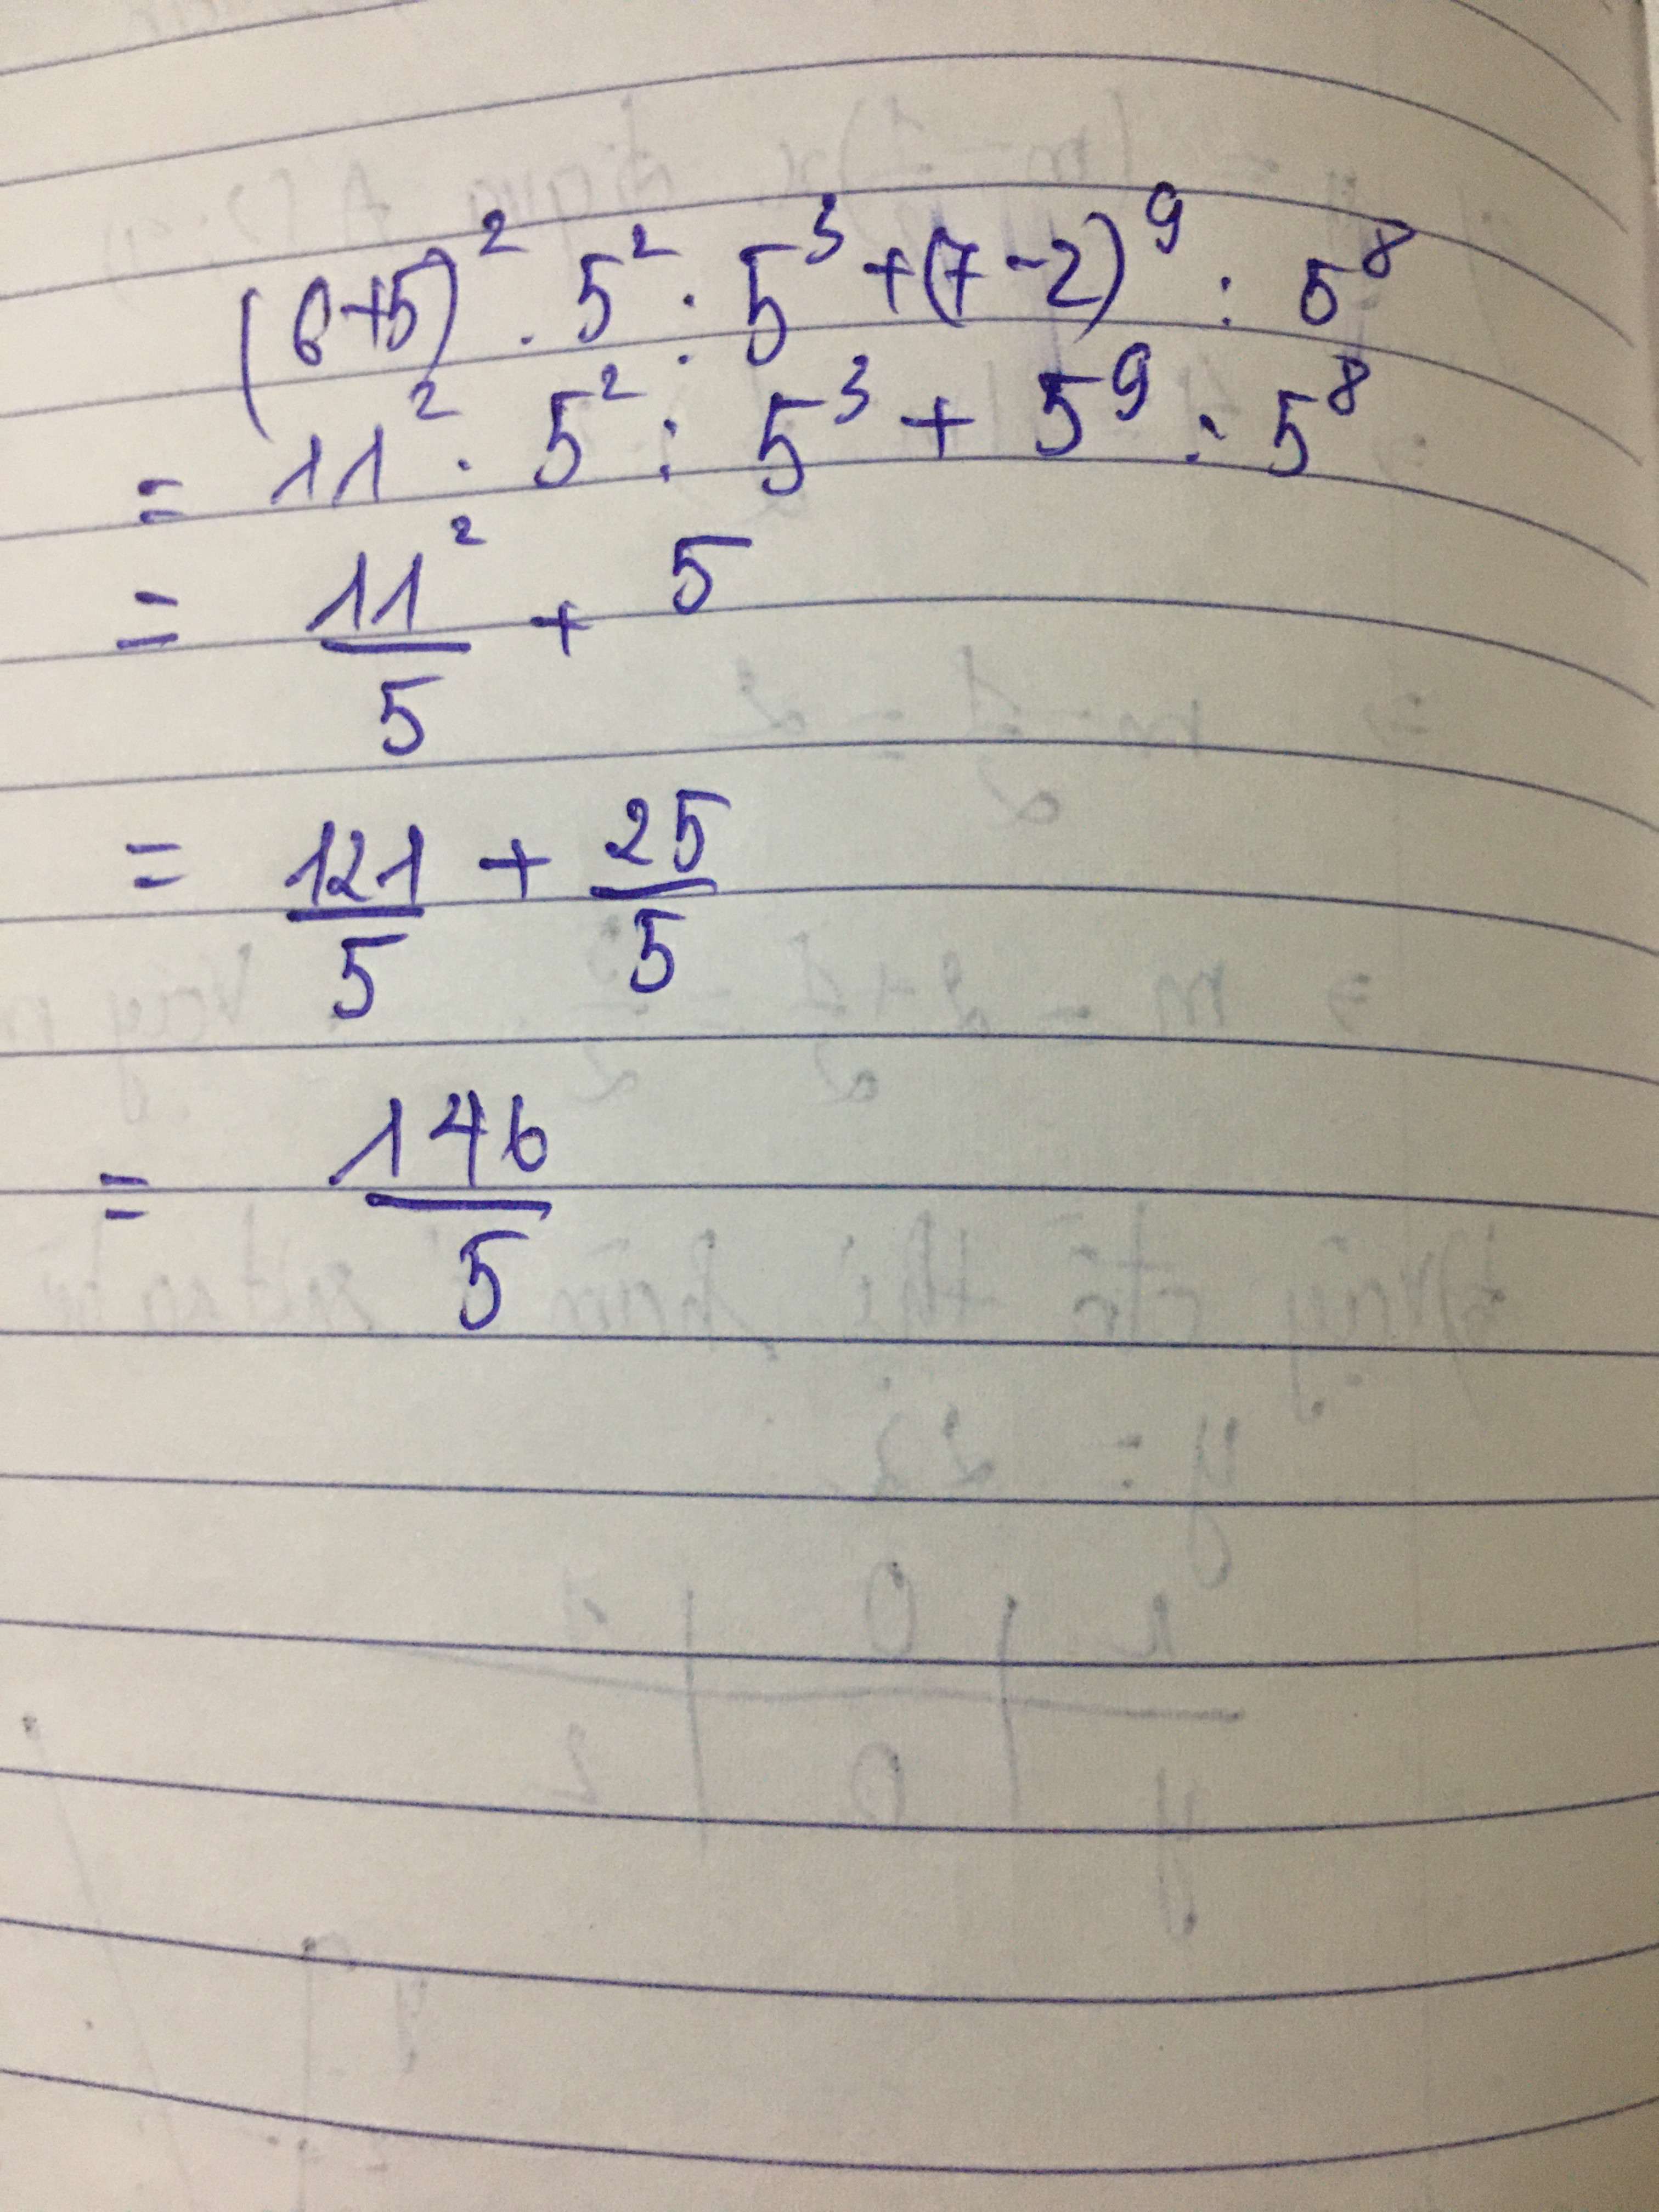 (6+5)² . 5² : 5³ + (7-2)⁹ : 5⁸
= 11² . 5² : 5³ + 5⁹ : 5⁸
= 11²/5 + 5
= 121/5 + 25/5
= 146/5